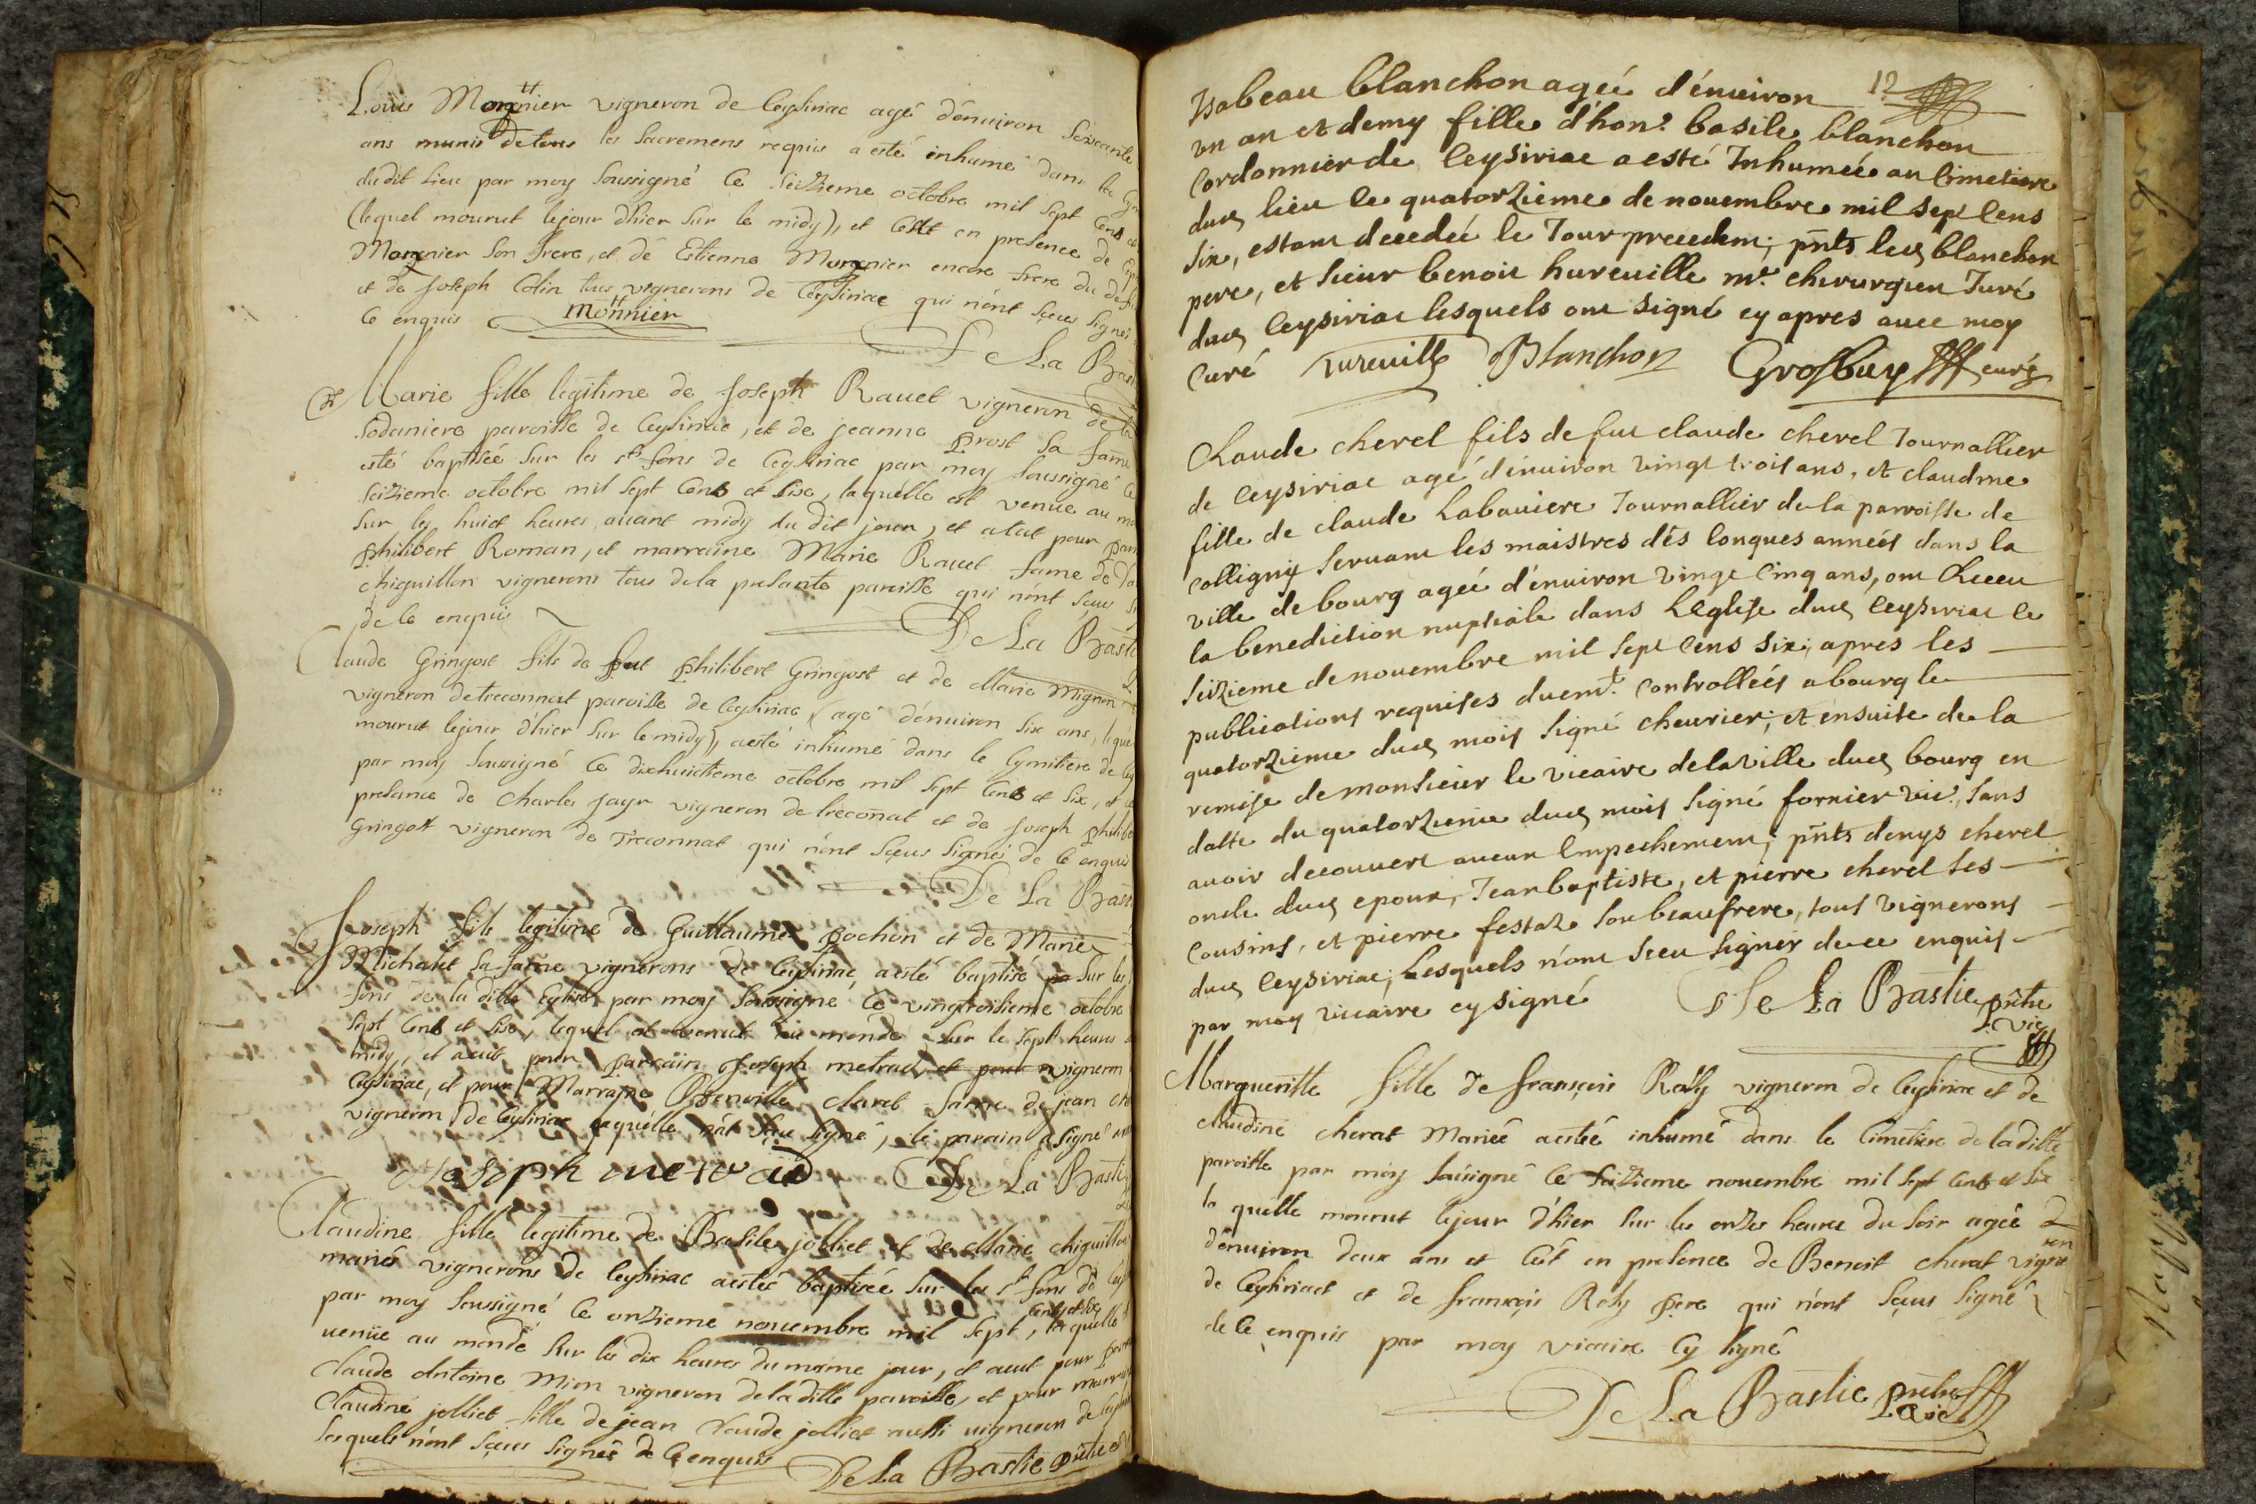 Louis Monnier vigneron de Ceysiriac agé d'énuiron soixante
ans munis de tous les sacremens requis a esté inhumé dans le
dudit lieu par moy soussigné ce seizieme octobre mil sept cens
(lequel mourut le jour d'hier sur le midy), et cest en presence de
Monnier son frere, et de Estienne Monnier encore frere du
et de Joseph Colin tous vignerons de Ceysiriac qui n'ont sçeus signés
ce enquis monnier
De La Bas
Marie fille legitime de Joseph Rauet vigneron de la
Sodaniere paroisse de Ceysiriac, et de jeanne Prost sa fame
esté baptisée sur les sts fons de Ceysiriac par moy soussigné ce
seizieme octobre mil sept cens et six, laquélle est venue au
sur les huict heures auant midy du dit jour, et at at pour
Philibert Roman, et marraine Marie Rauet fame de
chiquillon vignerons tous de la presante paroisse qui n'ont sçeus
de ce enquis
De La Basti
Claude Gringost fils de feu Philibert Gringost et de Marie Mignon
vigneron de treconnat paroisse de Ceysiriac (agé d'énuiron six ans,
mourut le jour d'hier sur le midy), a esté inhumé dans le Cymitiere de
par moy soussigné ce dixhuictieme octobre mil sept cens et six,
presance de Charles Jayr vigneron de treconat et de Joseph
Gringost vigneron de Treconnat qui n'ont sçeus signés de ce enquis
De La Bast
Joseph fils legitime de Guillaume Pochon et de Marie
Michalet sa fame vignerons de Ceysiriac, a esté baptisé sur les
fons de la ditte Eglise par moy soussigné ce vingtroisieme octobre
sept cens et six, lequel est venut au monde sur le sept heures
midy, et a eut pour parrain Joseph metrad et pour vigneron
Ceysiriac, et pour Marrayne Pernette claret fame de jean
vigneron de Ceysiriac laquélle n'at sçeu signé, le parain a signé
Joseph metrad De La Basti
Claudine fille legitime de Basile jolliet et de Marie chiguillon
mariés vignerons de Ceysiriac a estée baptisée sur les st fons de
par moy soussigné ce onzieme nouembre mil sept cens et six, laquelle
uenüe au monde sur les dix heures du mame jour, et aeut pour
Claude Antoine Mion vigneron de la ditte paroisse, et pour
Claudine jolliet fille de jean Claude jolliet aussi uigneron de
lesquels n'ont sçeus signés de ce enquis De La Bastie prêtre
12
Isabeau blanchon ageé d'énuiron
un an et demy fille d'hon. basile blanchon
Cordonnier de Ceysiriac a esté Inhumée au Cimetiere
dud lieu le quatorzieme de nouembre mil sept Cens
six, estant decedée le Jour precedent, pñts led blanchon
pere, et sieur benoit hureuille me. chirurgien Juré
dud Ceysiriac lesquels ont signé cy apres auec moy
Curé hureuille Blanchon Grosbuy curé
Claude cherel fils de feu claude cherel Journallier
de Ceysiriac agé d'énuiron Vingt trois ans, et claudine
fille de claude Labauiere Journallier de la parroisse de
colligny seruant les maistres dés longues années dans la
ville de bourg ageé d'énuiron Vingt Cinq ans, ont Receu
la benediction nuptiale dans L'Eglise dud Ceysiriac le
seizieme de nouembre mil sept Cens six, apres les
publications requises duemt. Controllées a bourg le
quatorzieme dud mois signé cheurier, et ensuite de la
remise de monsieur le vicaire de la Ville dud bourg en
datte du quatorzieme dud mois signé fornier vic. sans
auoir decouuert aucun Empechement, pñts denys cherel
oncle dud epoux, Jean baptiste, et pierre cherel ses
Cousins, et pierre festaz son beaufrere, tous Vignerons
dud Ceysiriac, Lesquels n'ont sceu signer de ce enquis
par moy vicaire cy signé De La Bastie prêtre
vic
Margueritte fille de françois Roly vigneron de Ceysiriac et de
claudine cherat Mariée aestée inhumé dans le Cimetiere de laditte
paroisse par moy soussigné ce seizieme nouembre mil sept cens et six
la quélle mourut le jour d'hier sur les onzes heures du soir agée
d'énuiron deux ans et cest en presence de Benoit cherat vigneron
de Ceysiriact et de françois Roly pere qui n'ont sçeus signé
de ce enquis par moy vicaire cy signé
De La Bastie prêtre
vic